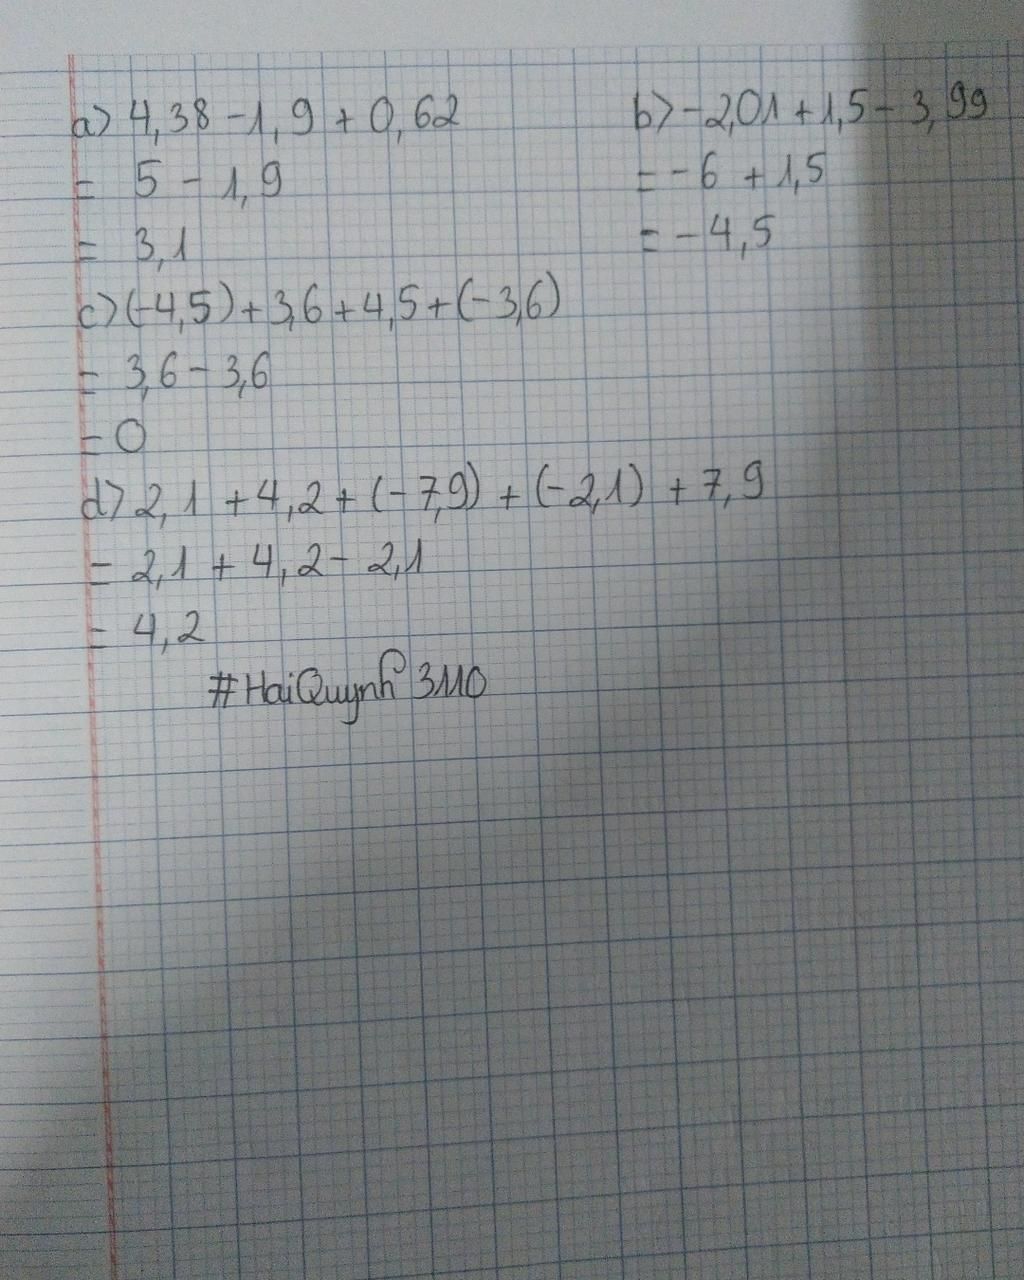 a) 4,38 - 1,9 + 0,62
= 5 - 1,9
= 3,1
b) -2,01 + 1,5 - 3,99
= -6 + 1,5
= -4,5
c) (-4,5) + 3,6 + 4,5 + (-3,6)
= 3,6 - 3,6
= 0
d) 2,1 + 4,2 + (-7,9) + (-2,1) + 7,9
= 2,1 + 4,2 - 2,1
= 4,2
#HaiQuynh 3110